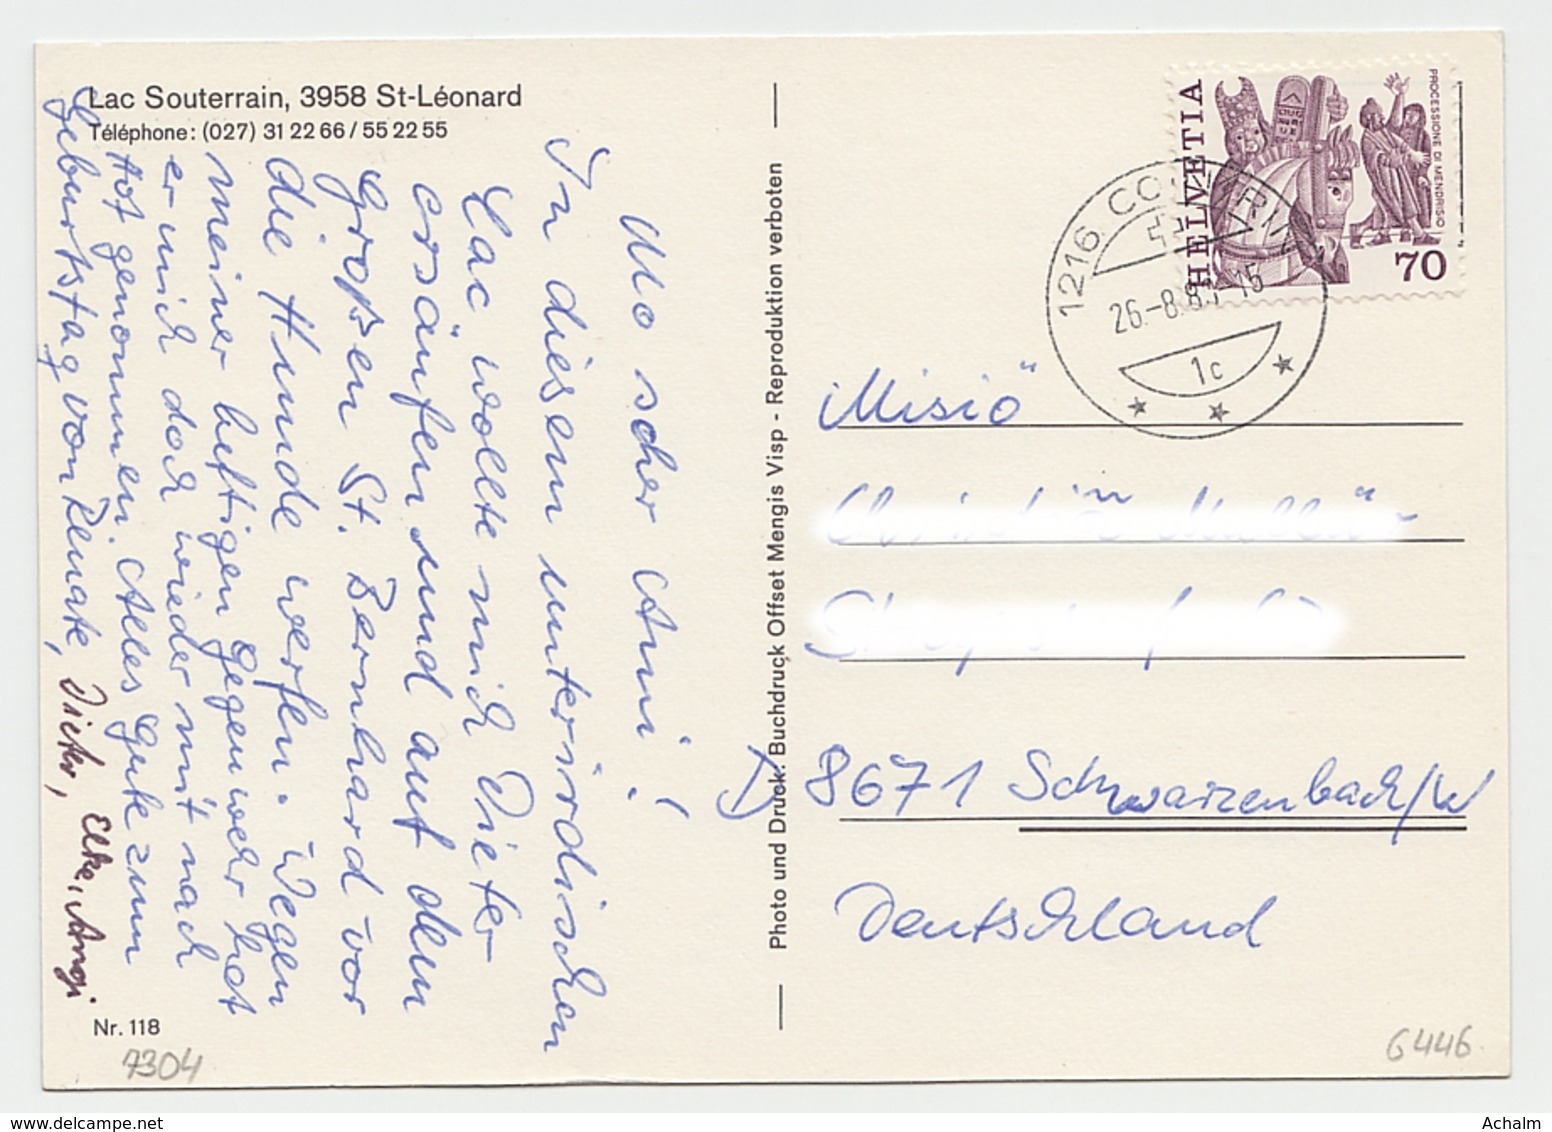 Lac Souterrain, 3958 St-Léonard
Téléphone: (027) 31 22 66 / 55 22 55
Mo scher Ami!
In diesem unterirdischen
Lac wollte mich Dieter
ersäufen und auf dem
Großen St. Bernhard vor
die Hunde werfen. Wegen
meiner heftigen Gegenwehr hat
er mich doch wieder mit nach
genommen. Alles Gute zum
Geburtstag von Renate, Dieter, Elke, Angi
Nr. 118
7304
Photo und Druck: Buchdruck Offset Mengis Visp - Reproduktion verboten
HELVETIA
PROCESSIONE DI MENDRISIO
70
1216 COINTRIN
26.-8.8 -15
1c
Misiö
D 8671 Schwarzenbach/W
Deutschland
6446
Achalm